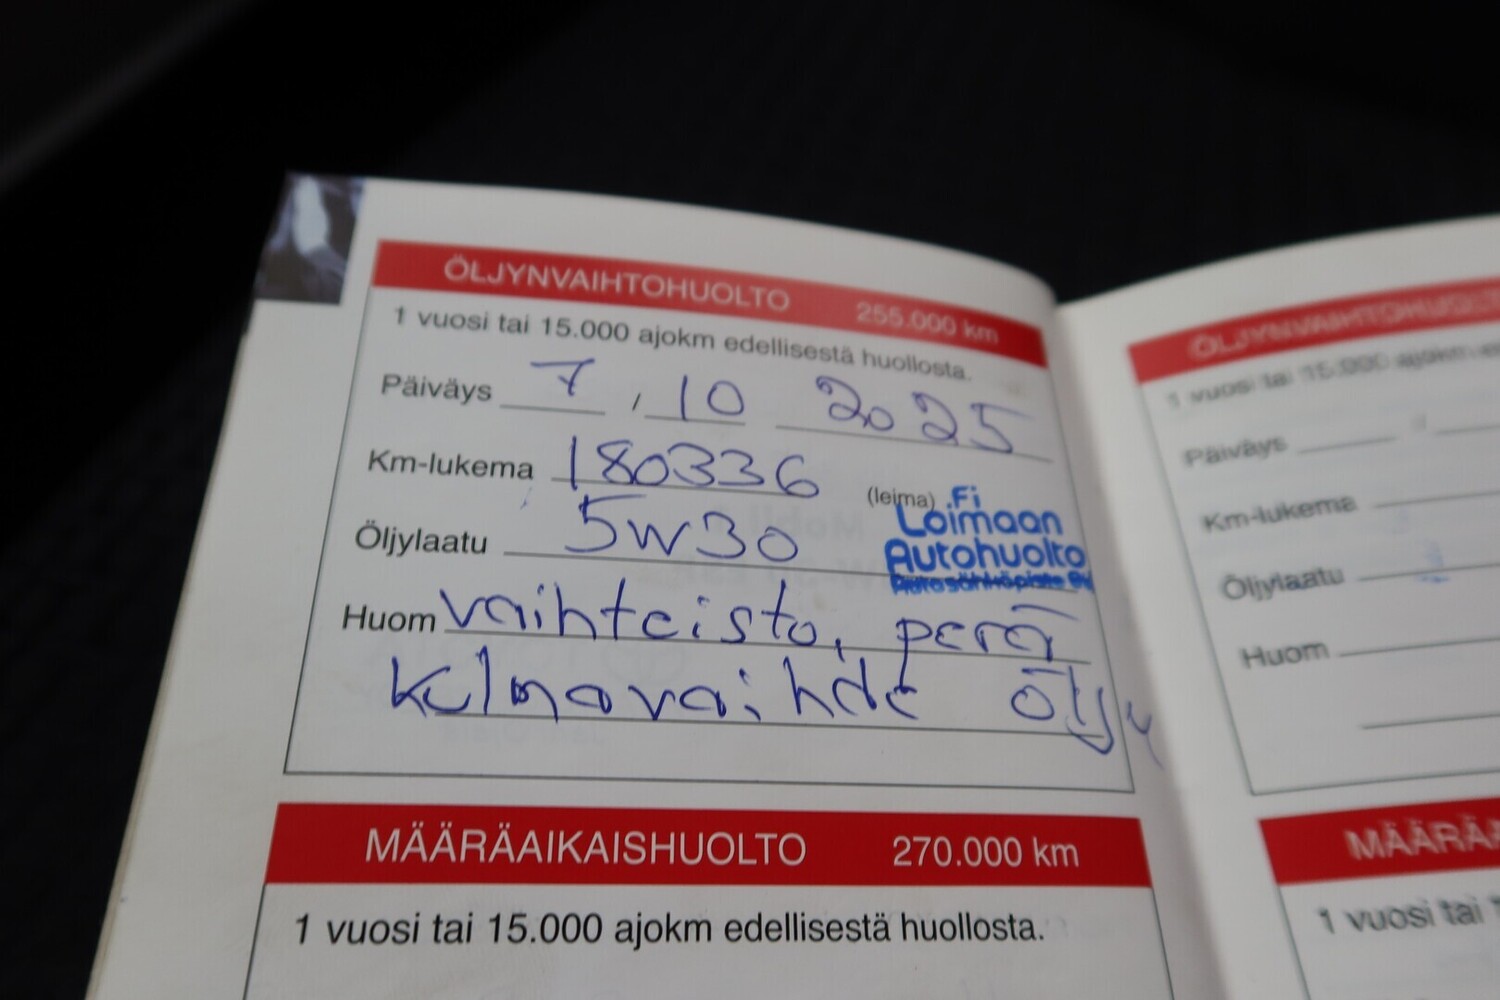 ÖLJYNVAIHTOHUOLTO 255.000 km
1 vuosi tai 15.000 ajokm edellisestä huollosta.
Päiväys 7 / 10 2025
Km-lukema 180336 (leima)
.Fi
Loimaan
Autohuolto
Autosähköpiste Oy
Öljylaatu 5W30
Huom vaihteisto, perä
kulmavaihde öljy
MÄÄRÄAIKAISHUOLTO 270.000 km
1 vuosi tai 15.000 ajokm edellisestä huollosta.
ÖLJYNVAIHTOHUOLT
1 vuosi tai 15.000 ajokm
Päiväys /
Km-lukema
Öljylaatu
Huom
MÄÄRÄ
1 vuosi tai 1